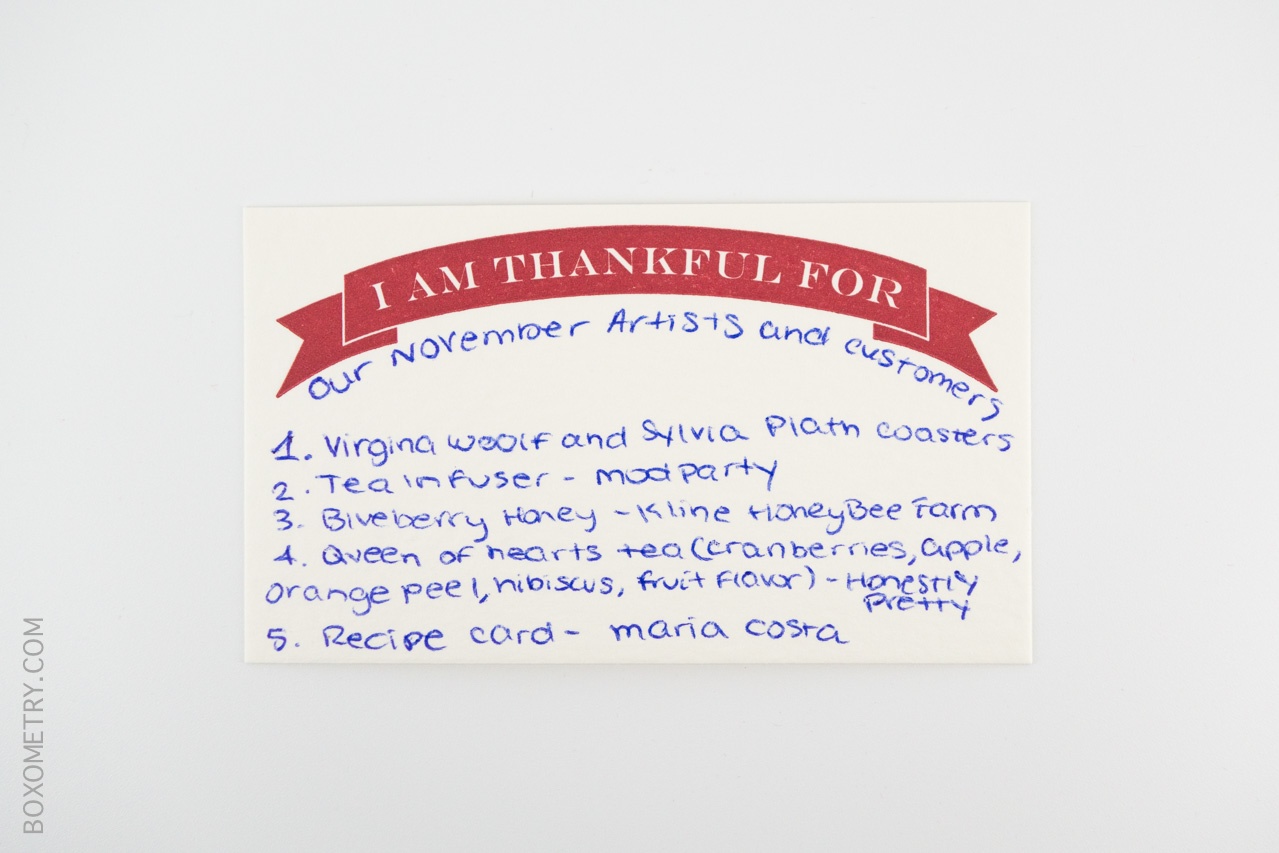 I AM THANKFUL FOR
our November Artists and customers
1. Virgina woolf and Sylvia Plath coasters
2. Tea infuser - modparty
3. Blueberry Honey - Kline HoneyBee Farm
4. Queen of hearts tea (cranberries, apple,
orange peel, hibiscus, fruit flavor) - Honestly
Pretty
5. Recipe card - maria costa
BOXOMETRY.COM